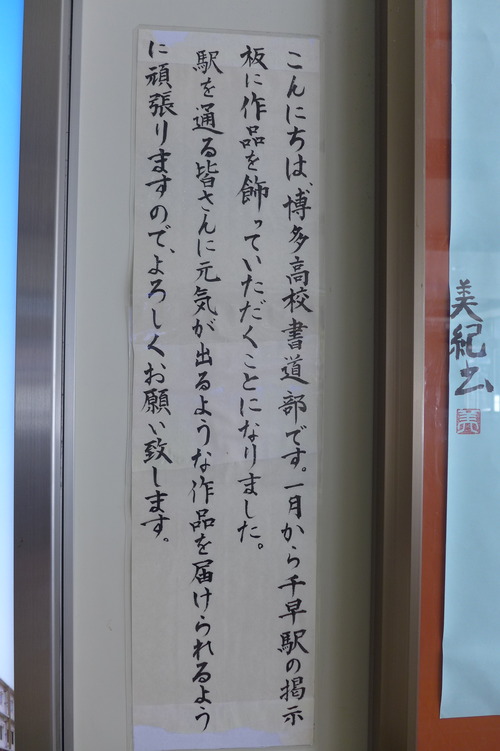 こんにちは、博多高校書道部です。一月から千早駅の掲示
板に作品を飾っていただくことになりました。
駅を通る皆さんに元気が出るような作品を届けられるよう
に頑張りますので、よろしくお願い致します。
美紀